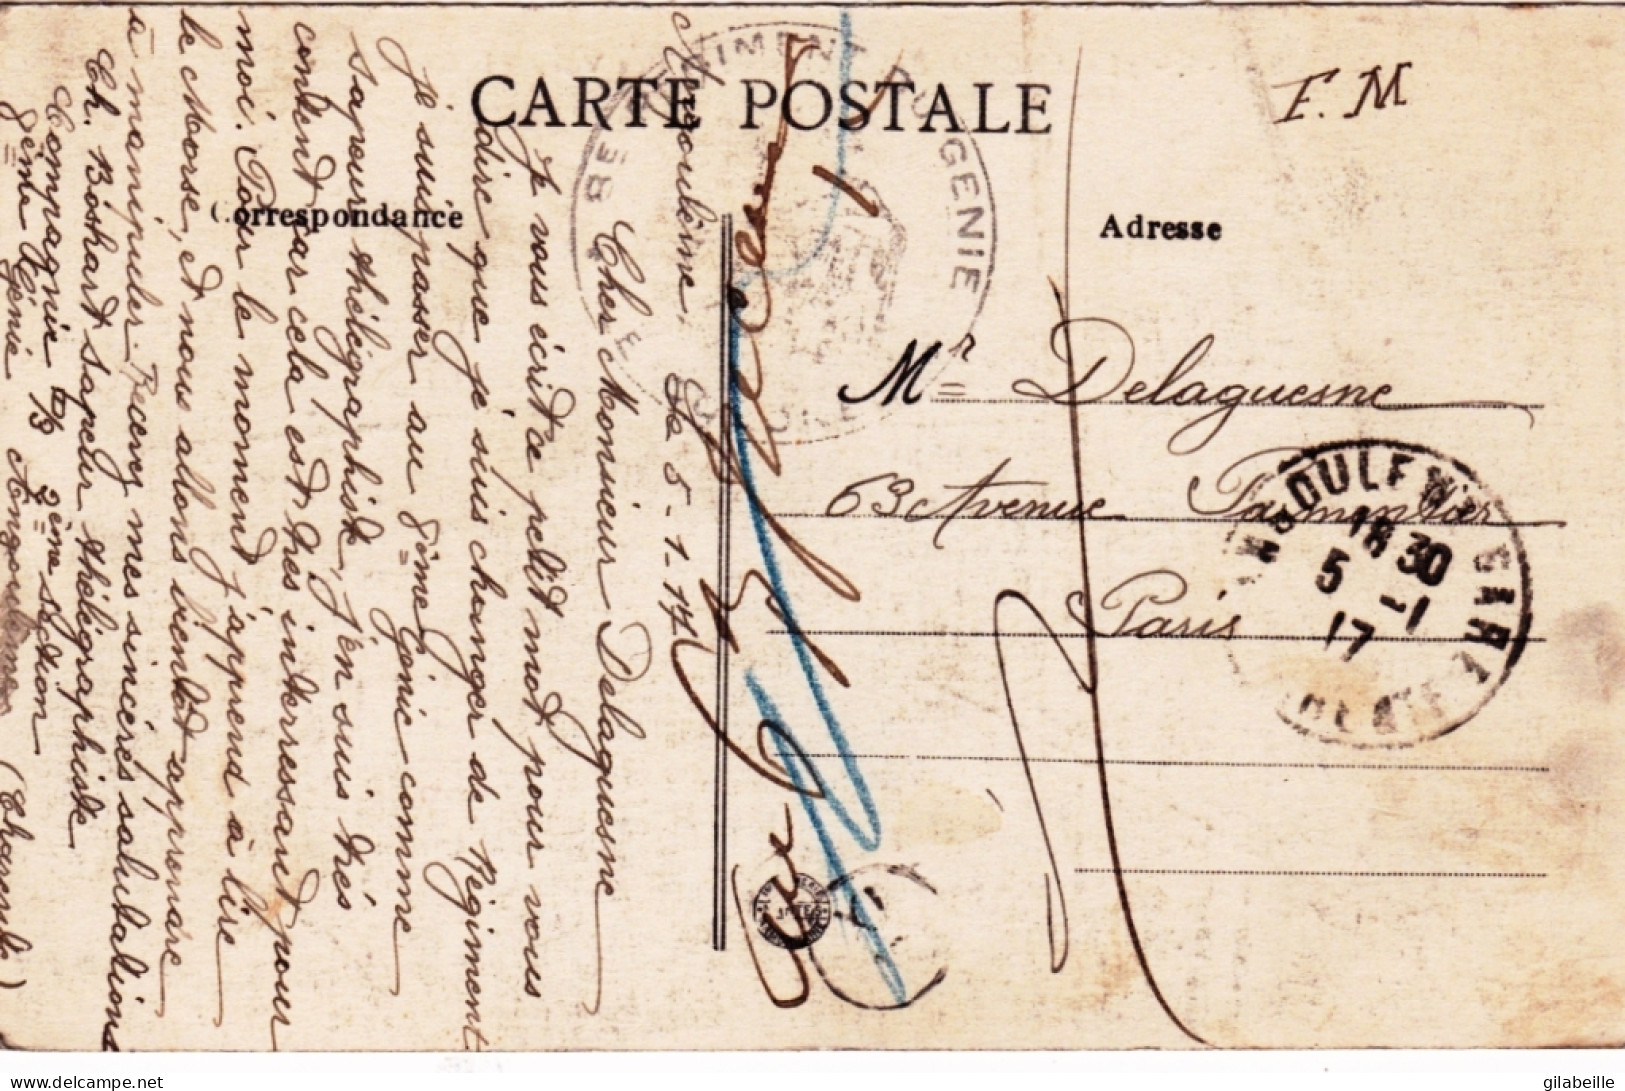 CARTE POSTALE
F.M
Correspondance
Adresse
8E REGIMENT DU GENIE
Angoulême, le 5-1-17
Cher Monsieur Delaguesne
Je vous écrit ce petit mot pour vous
dire que je suis changer de Régiment
je suis passer au 8ème Génie comme
sapeur thélégraphiste, j'en suis très
content car cela est très interressant pour
moi. Pour le moment j'apprend à lire
le Morse, et nous allons bientôt apprendre
à manipuler. Recevez mes sincères salutations
Ch. Boshart sapeur thélégraphiste
Compagnie 2ème section
8ème Génie Angoulême (Charente)
Mr Delaguesne
63 Avenue Parmentier
Paris
18 30
5 -1
17
delcampe.net
gilabeille